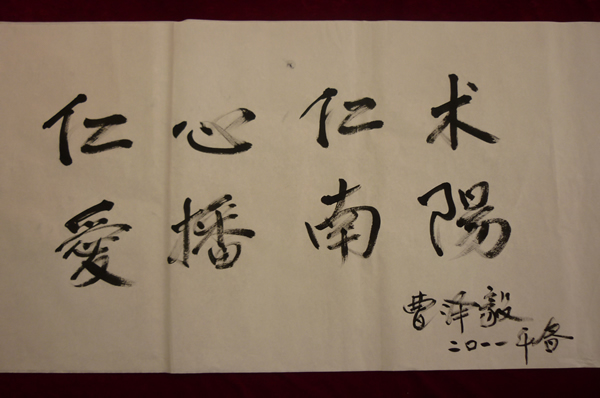 仁心仁术
愛播南陽
曹泽毅
二〇一一年冬